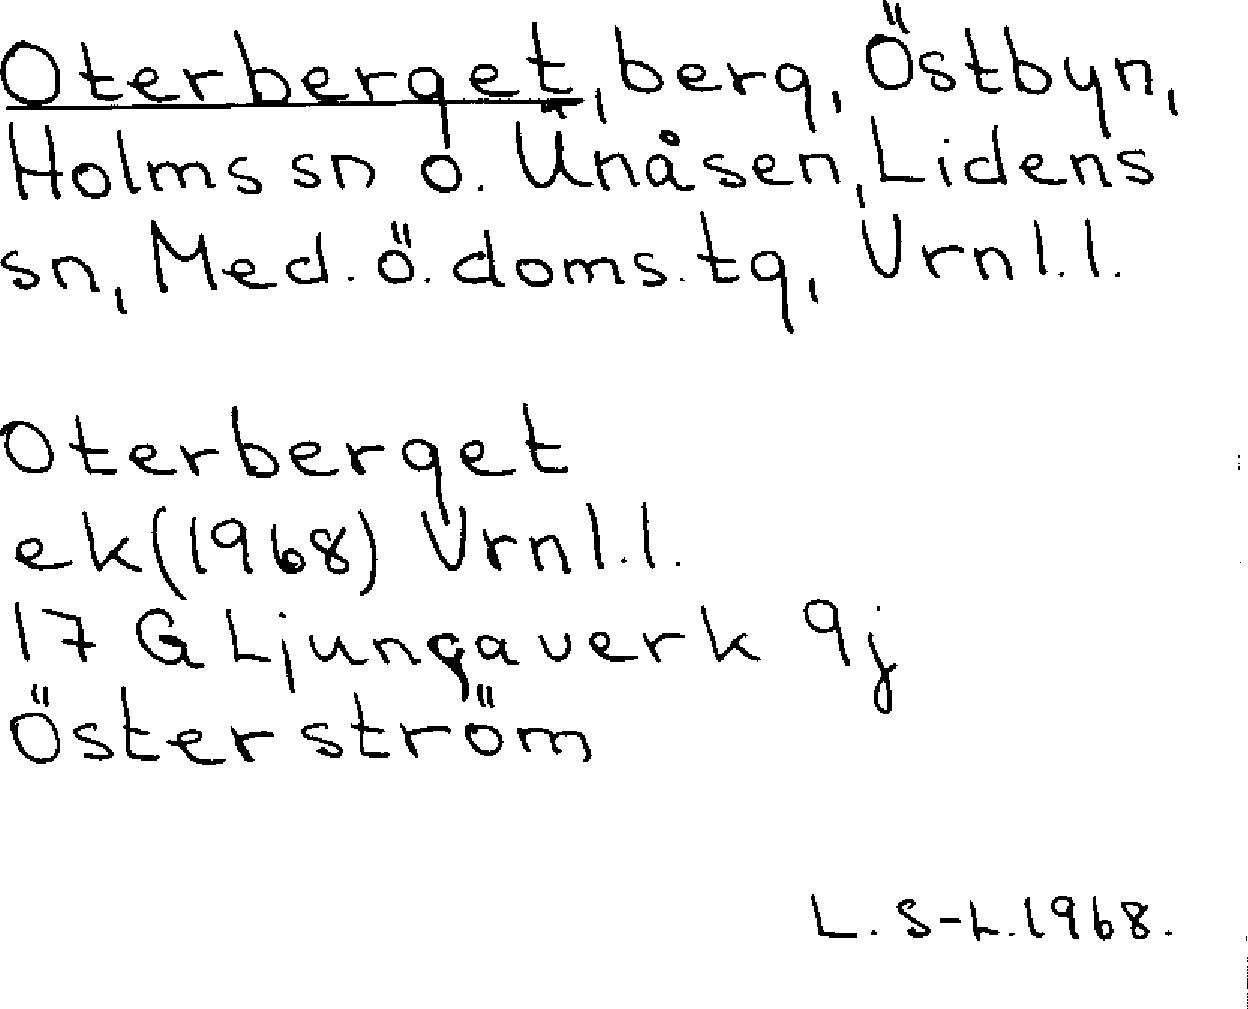 Oterberget, berg, Östbyn,
Holms sn o. Unåsen, Lidens
sn, Med. ö. doms. tg, Vrnl.l.
Oterberget
ek (1968) Vrnl.l.
17 G Ljungaverk 9j
Österström
L. S-L. 1968.